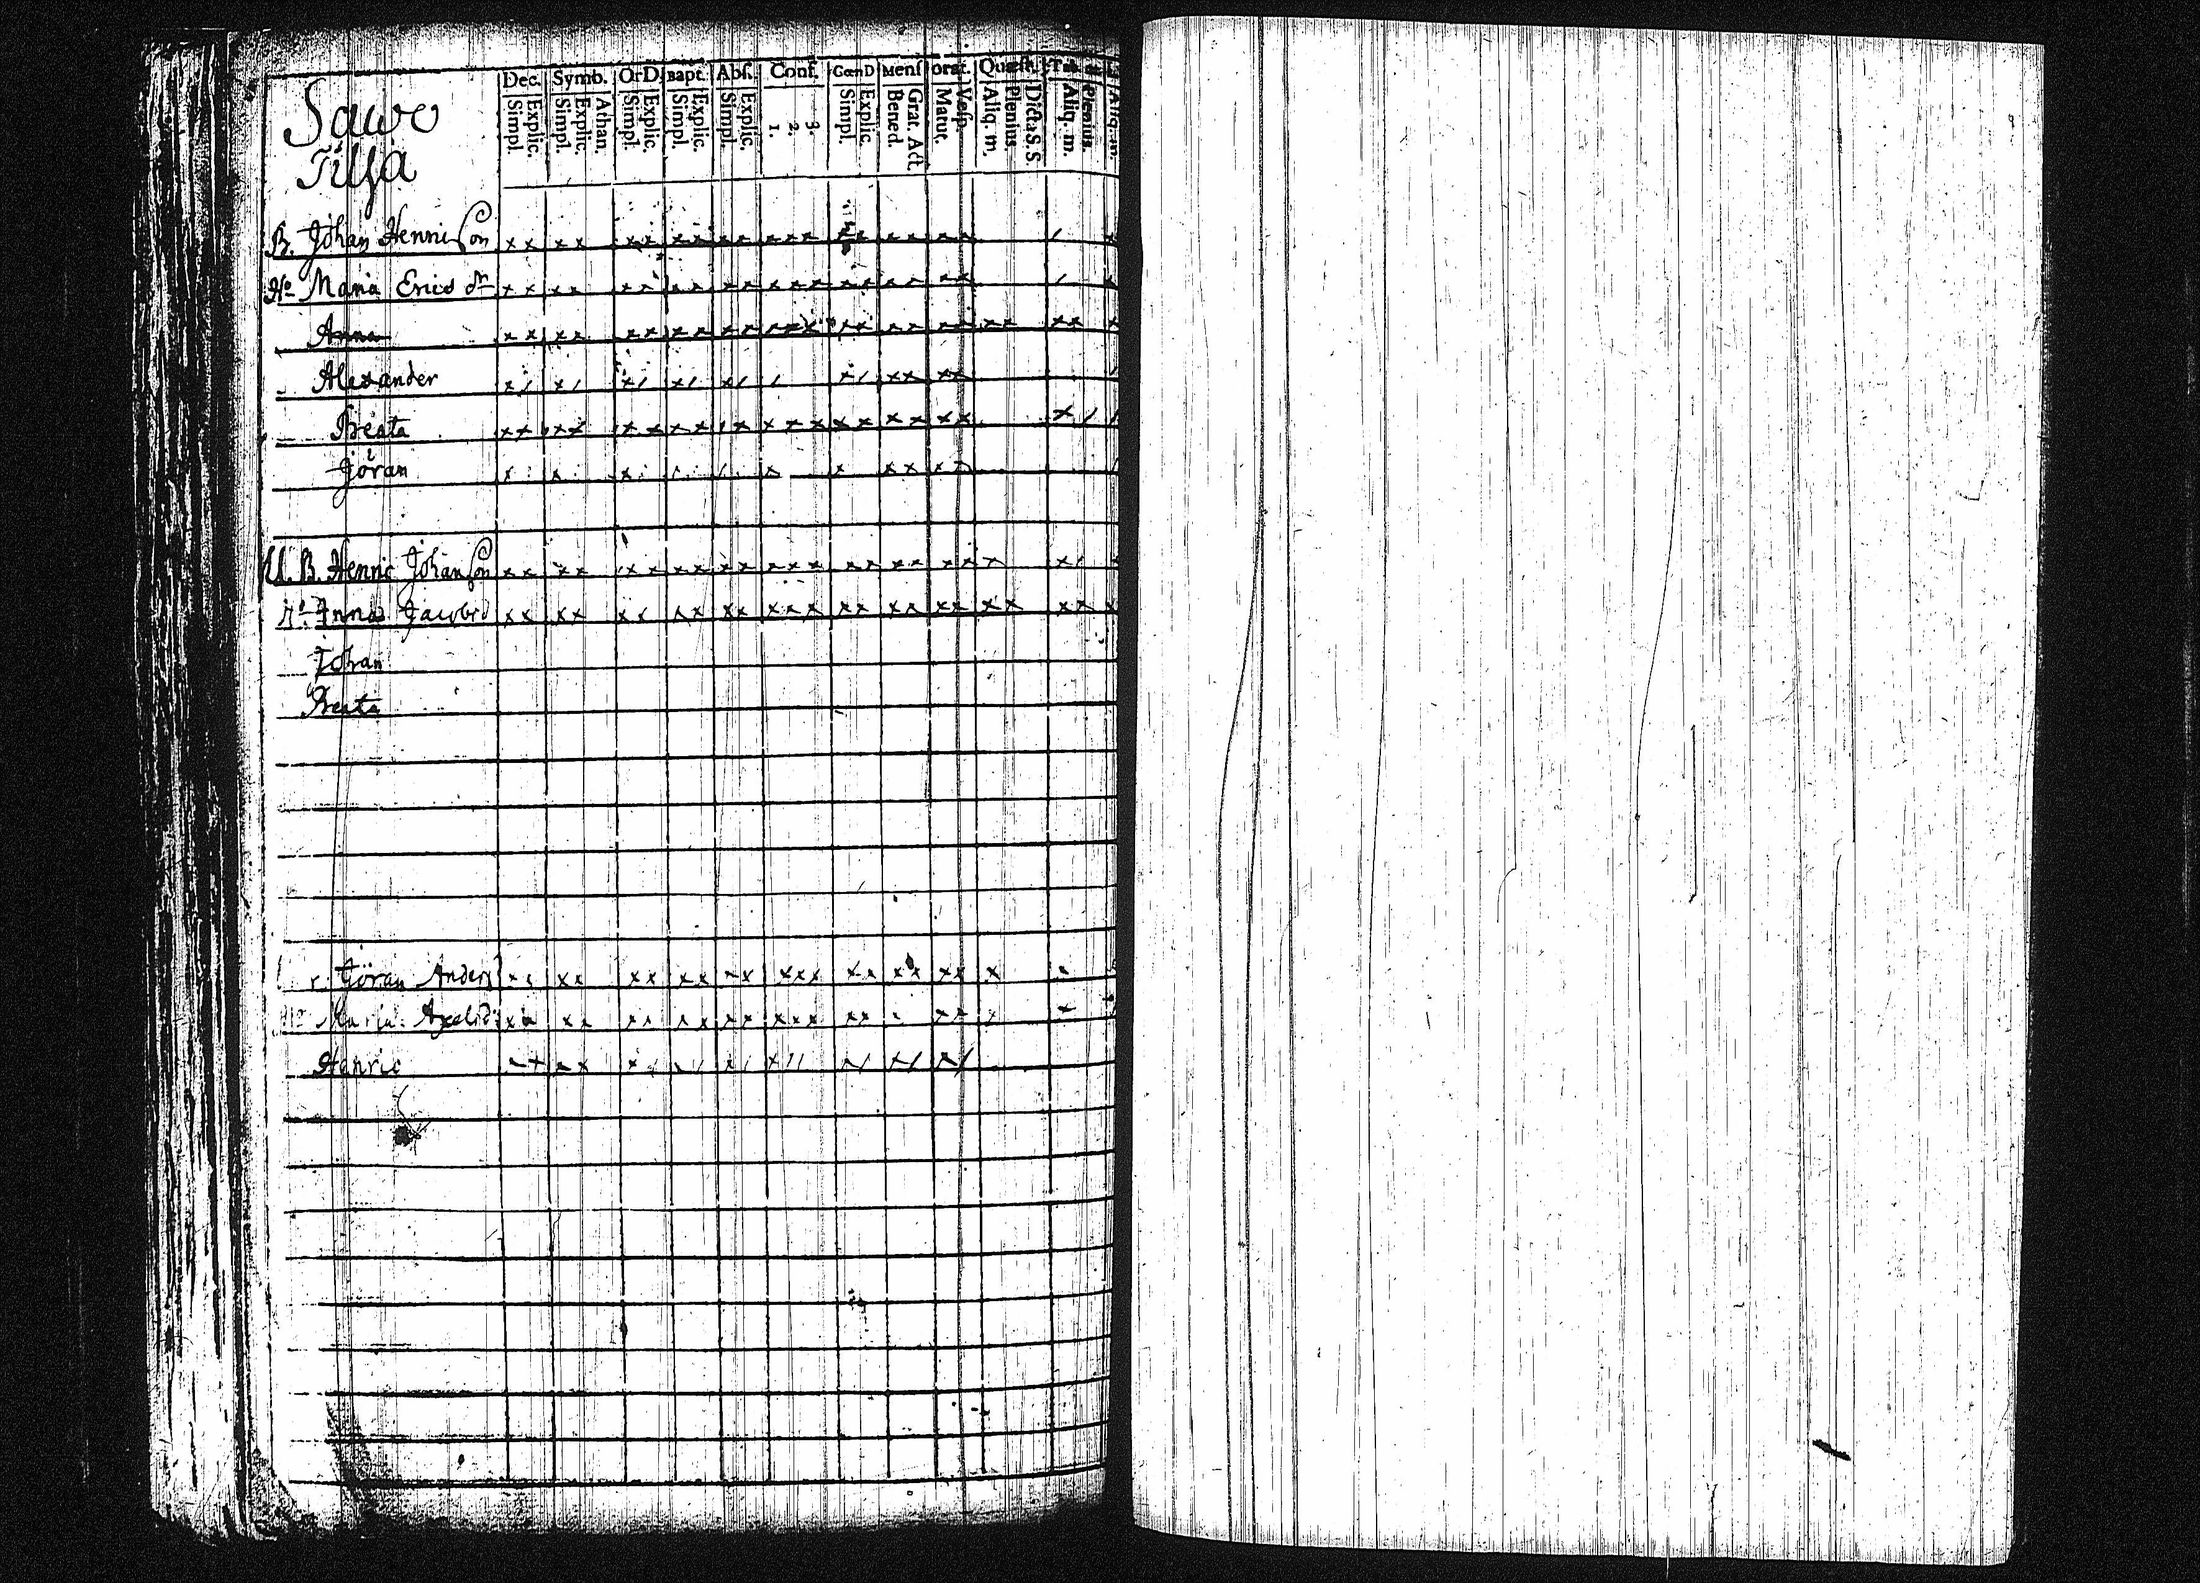 Sawo
Tilja
Dec. Symb. OrD. Bapt. Abs. Conf. CœnD Mens Orat. Quæst.
Explic. Simpl. Athan. Explic. Simpl. Explic. Simpl. Explic. Simpl. Explic. Simpl. 3. 2. 1. Explic. Simpl. Grat. Act. Bened. Vesp. Matut. Dicta S.S. Plenius. Aliq. m. Plenius. Aliq. m. Aliq. m.
B. Johan Henricson x x x x x x x x x x x x x x x x x x x
Ho Maria Erics dr x x x x x x x x x x x x x x x x x x x
Anna x x x x x x x x x x x x x x x x x x x x x x x
Alexander x / x / x / x / x / / x / x x x x
Beata x x x x x x x x x x x x x x x x x x x x /
Jöran x x x x x x x x x
U. B. Henric Johanson x x x x x x x x x x x x x x x x x x x x x /
Ho Anna Jacobsd x x x x x x x x x x x x x x x x x x x x x x x
Johan
Beata
Jöran Anders x x x x x x x x x x x x x x x x x x x x
Maria Axelsd x x x x x x x x x x x x x x x x x x x
Henric